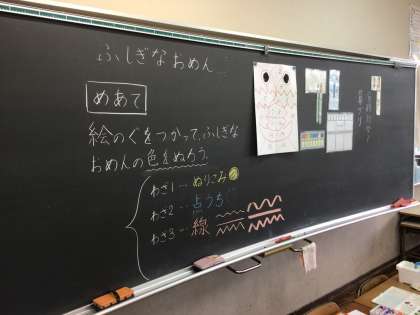 ふしぎなおめん
めあて
絵のぐをつかって、ふしぎな
おめんの色をぬろう。
わざ1…ぬりこみ
わざ2…点うち
わざ3…線